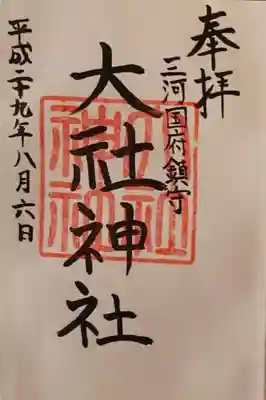 奉拝
三河国府鎮守
大社神社
平成二十九年八月六日